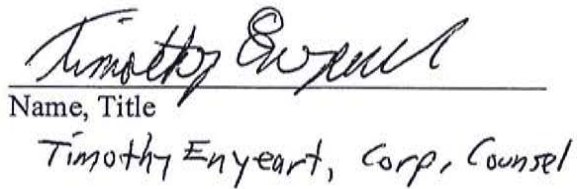 Timothy Enyeart
Name, Title
Timothy Enyeart, Corp, Counsel